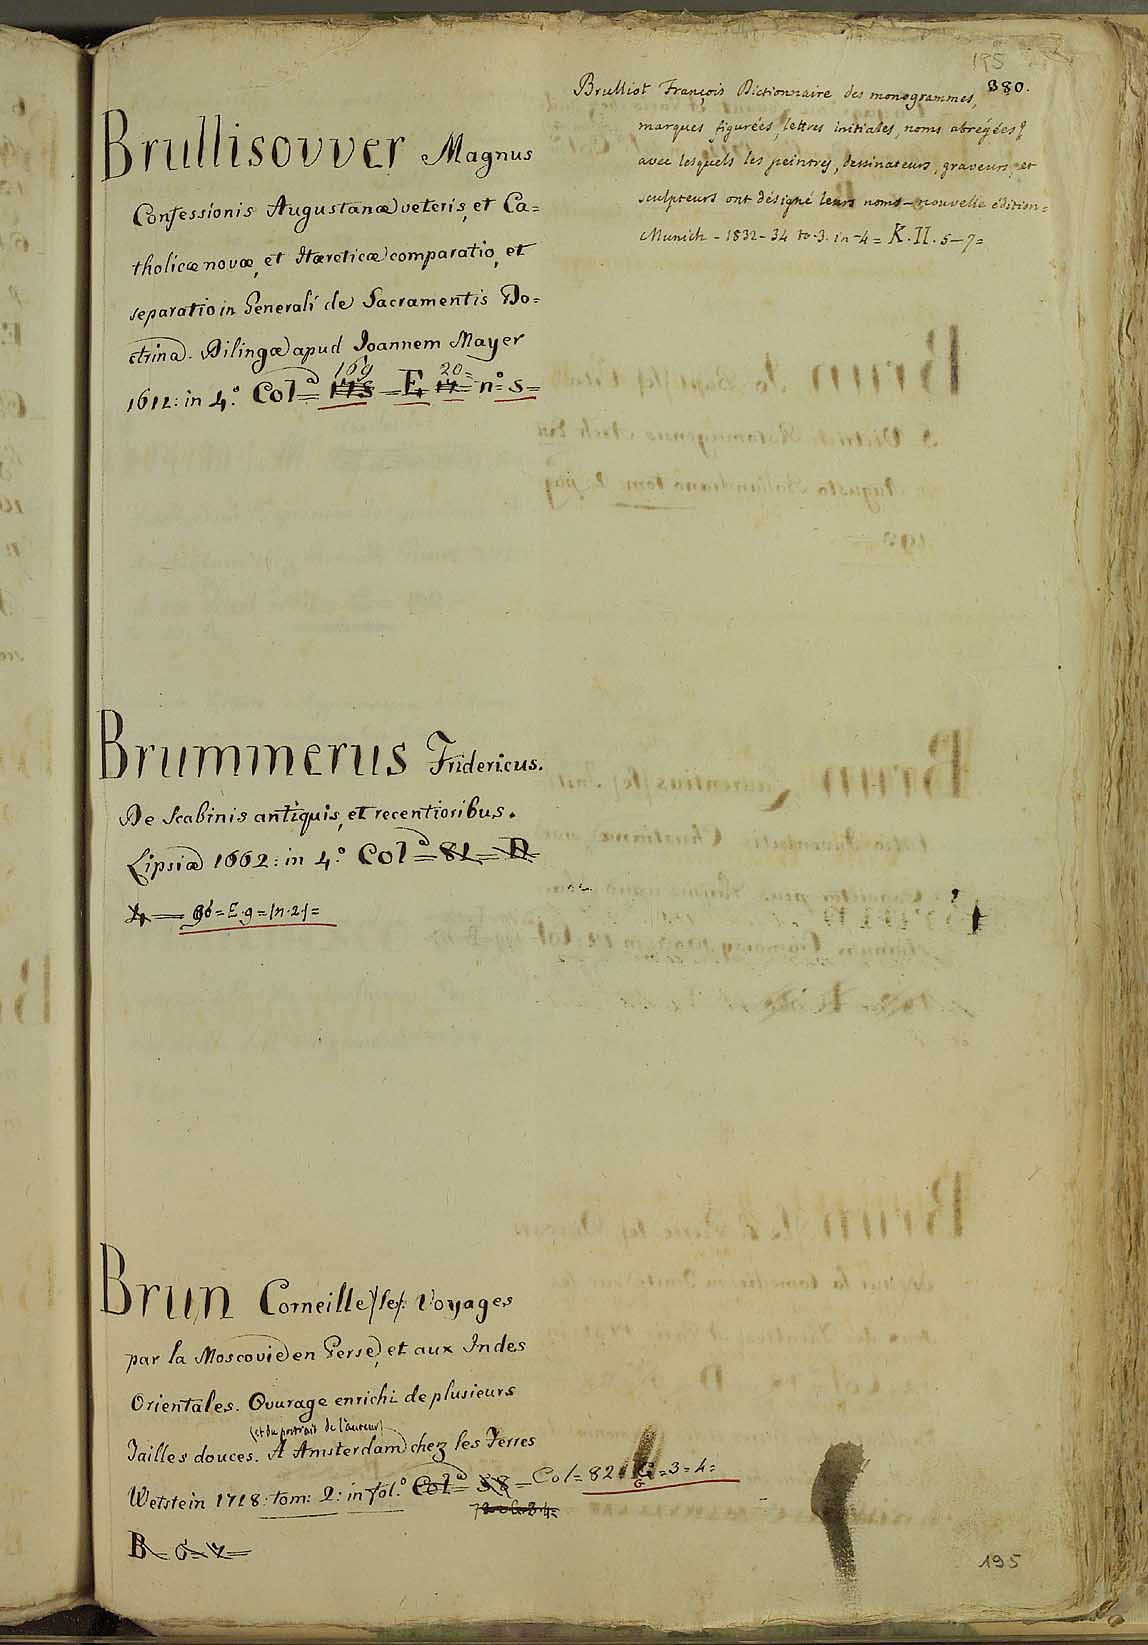 195
380.
Brulliot François Dictionnaire des monogrammes,
marques figurées, lettres initiales, noms abrégées &
avec lesquels les peintres, dessinateurs, graveurs, et
sculpteurs ont désigné leurs noms - nouvelle édition =
Munich - 1832-34 to. 3. in -4 = K. II. 5-7 =
Brullisovver Magnus
Confessionis Augustanæ veteris, et Ca=
tholicæ novæ, et Hæreticæ comparatio, et
separatio in Generali de Sacramentis Do=
ctrina. Dilingæ apud Ioannem Mayer
169 20
1612: in 4.° Col.ª = 173 = E 17 = n.° 5 =
Brummerus Fridericus.
De Scabinis antiquis, et recentioribus.
Lipsiæ 1662: in 4.° Col.ª = 81 = D
4 = 96 = E. 9 = /n. 2/ =
Brun Corneille /le/: Voyages
par la Moscovie en Perse, et aux Indes
Orientales. Ouvrage enrichi de plusieurs
(et du portrait de l'auteur)
Tailles douces. A Amsterdam chez les Ferres
Wetstein 1718: tom: 2: in fol.° Col.ª = 58 = Col = 82 = G = 3 = 4 =
B = 6 = 7 =
195